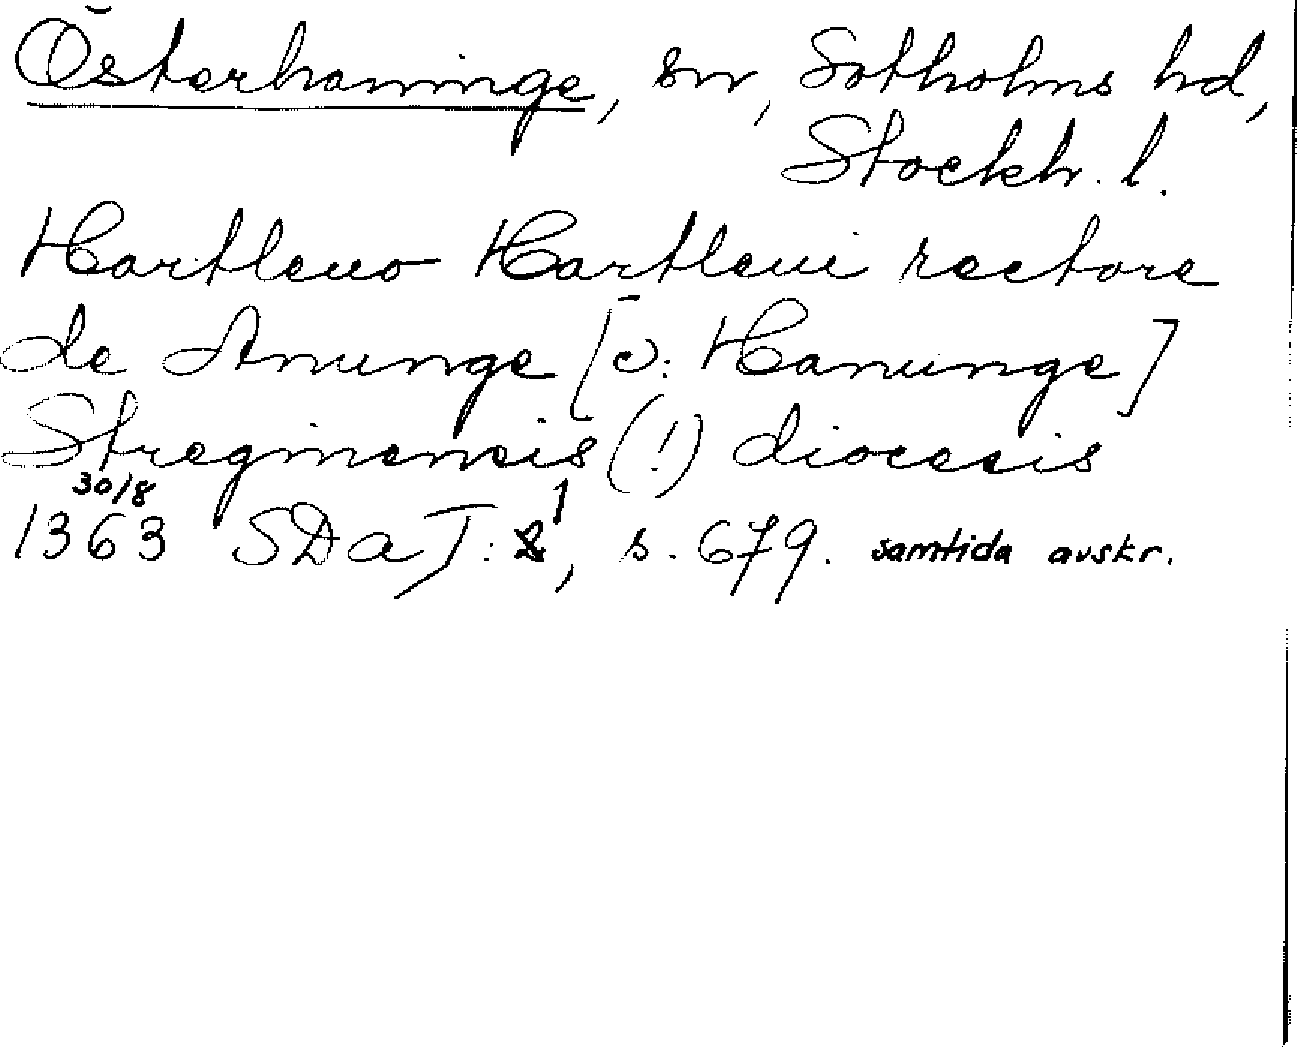 Österhaninge, sn, Sotholms hd,
Stockh. l.
Hartleuo Hartleui rectore
de Anunge [ɔ: Hanunge]
Streginensis (!) diocesis
30/8
1363 SDaJ: 1, s. 679. samtida avskr.